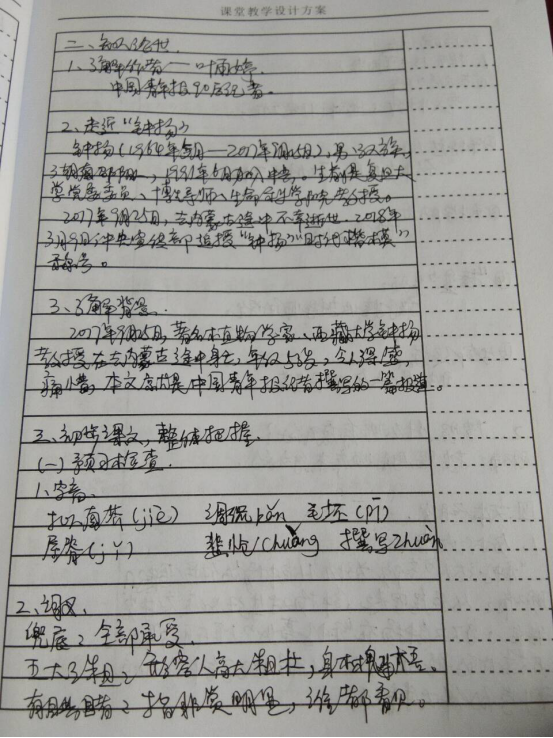 课堂教学设计方案
二、知人论世
1、了解作者——叶雨婷
中国青年报90后记者。
2、走近“钟扬”
钟扬（1964年5月—2017年9月25日），男，汉族，
湖南邵阳人，1991年6月加入中共，生前是复旦大
学党委委员、博士生导师、生命科学学院教授。
2017年9月25日，去内蒙古途中不幸逝世，2018年
3月9日中央宣传部追授“钟扬”“时代楷模”
称号。
3、了解背景
2017年9月25日，著名植物学家、西藏大学钟扬
教授在去内蒙古途中身亡，年仅53岁，令人深感
痛惜，本文应当是中国青年报记者撰写的一篇报道。
三、初步课文，整体把握
（一）预习检查
1、字音
拟南芥（jiè） 调侃kǎn 毛坯（pī）
屋脊（jǐ） 悲怆/chuàng 撰写zhuàn
2、词义
兜底：全部承受。
五大三粗：形容人高大粗壮，身材魁梧。
有目共睹：指非常明显，谁都看见。